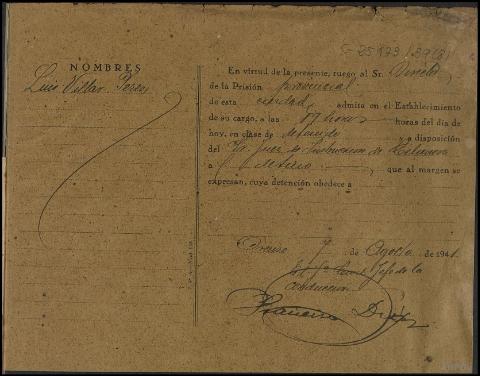 NOMBRES
Luis Villar Perez
En virtud de la presente, ruego al Sr. Director
de la Prisión provincial
de esta ciudad, admita en el Establecimiento
de su cargo, a las 17 horas horas del día de
hoy, en clase de detenido y a disposición
del Sr. Juez de Instrucción de
a, que al margen se
expresan, cuya detención obedece a
7 de Agosto de 1941
El Jefe de la
conducción
Francisco